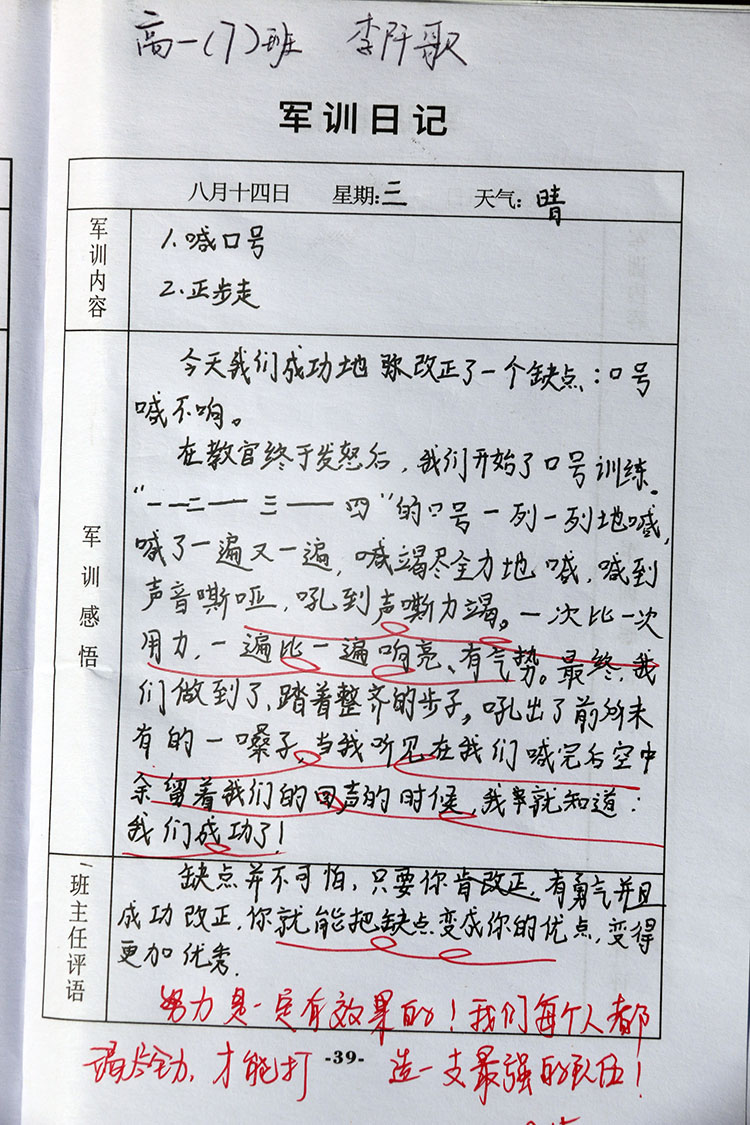 高一(7)班 李阡歌
军训日记
八月十四日 星期:三 天气:晴
军训内容
1.喊口号
2.正步走
军训感悟
今天我们成功地 改正了一个缺点:口号
喊不响。
在教官终于发怒后,我们开始了口号训练。
“一——二——三——四”的口号一列一列地喊,
喊了一遍又一遍,喊竭尽全力地喊,喊到
声音嘶哑,吼到声嘶力竭。一次比一次
用力,一遍比一遍响亮、有气势。最终,我
们做到了,踏着整齐的步子,吼出了前所未
有的一嗓子,当我听见在我们喊完后空中
余留着我们的回声的时候,我就知道:
我们成功了!
班主任评语
缺点并不可怕,只要你肯改正,有勇气并且
成功改正,你就能把缺点变成你的优点,变得
更加优秀.
努力是一定有效果的!我们每个人都
竭尽全力,才能打造一支最强的队伍!
-39-